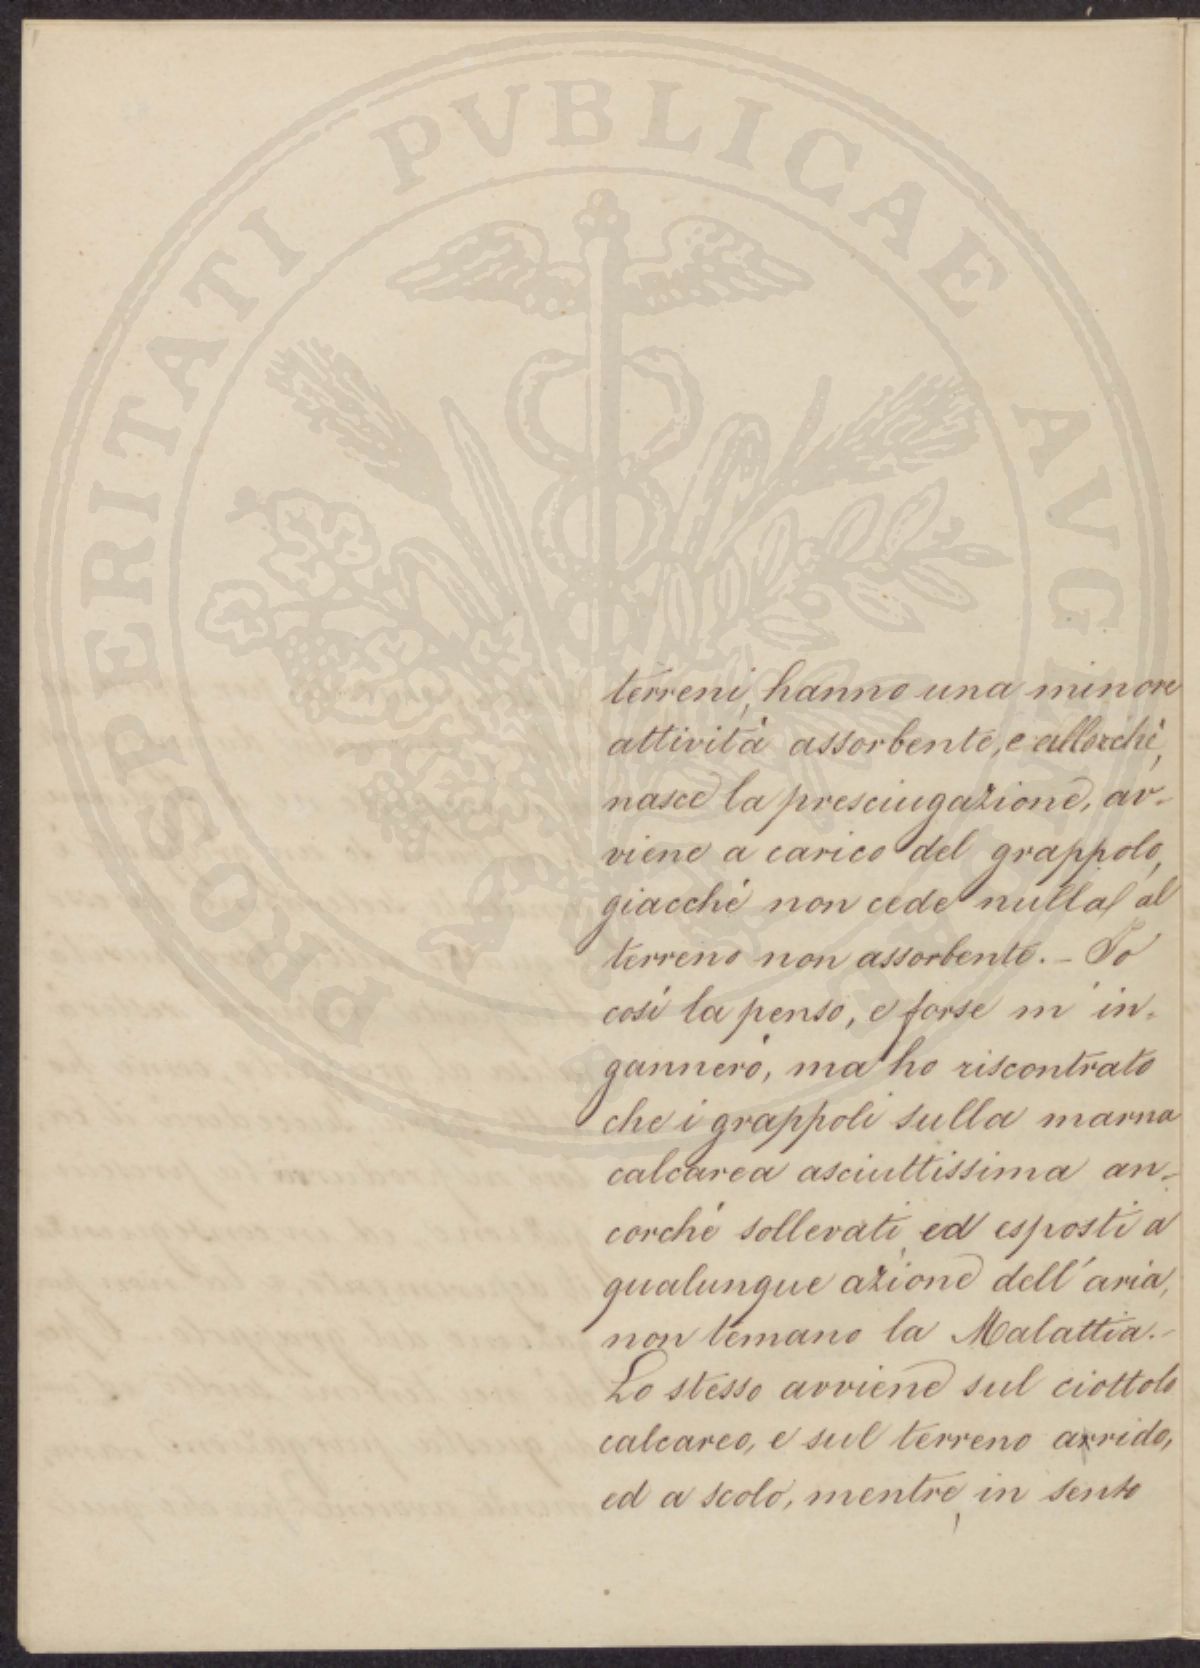 PROSPERITATI PVBLICAE AVGENDAE
terreni, hanno una minore
attività assorbente, e allorchè,
nasce la presciugazione, av-
viene a carico del grappolo,
giacchè non cede nulla al
terreno non assorbente. - Io
così la penso, e forse m'in-
gannerò, ma ho riscontrato
che i grappoli sulla marna
calcarea asciuttissima an-
corchè sollevati, ed esposti a
qualunque azione dell'aria,
non temano la Malattia. -
Lo stesso avviene sul ciottolo
calcareo, e sul terreno arrido,
ed a scolo, mentre, in senso